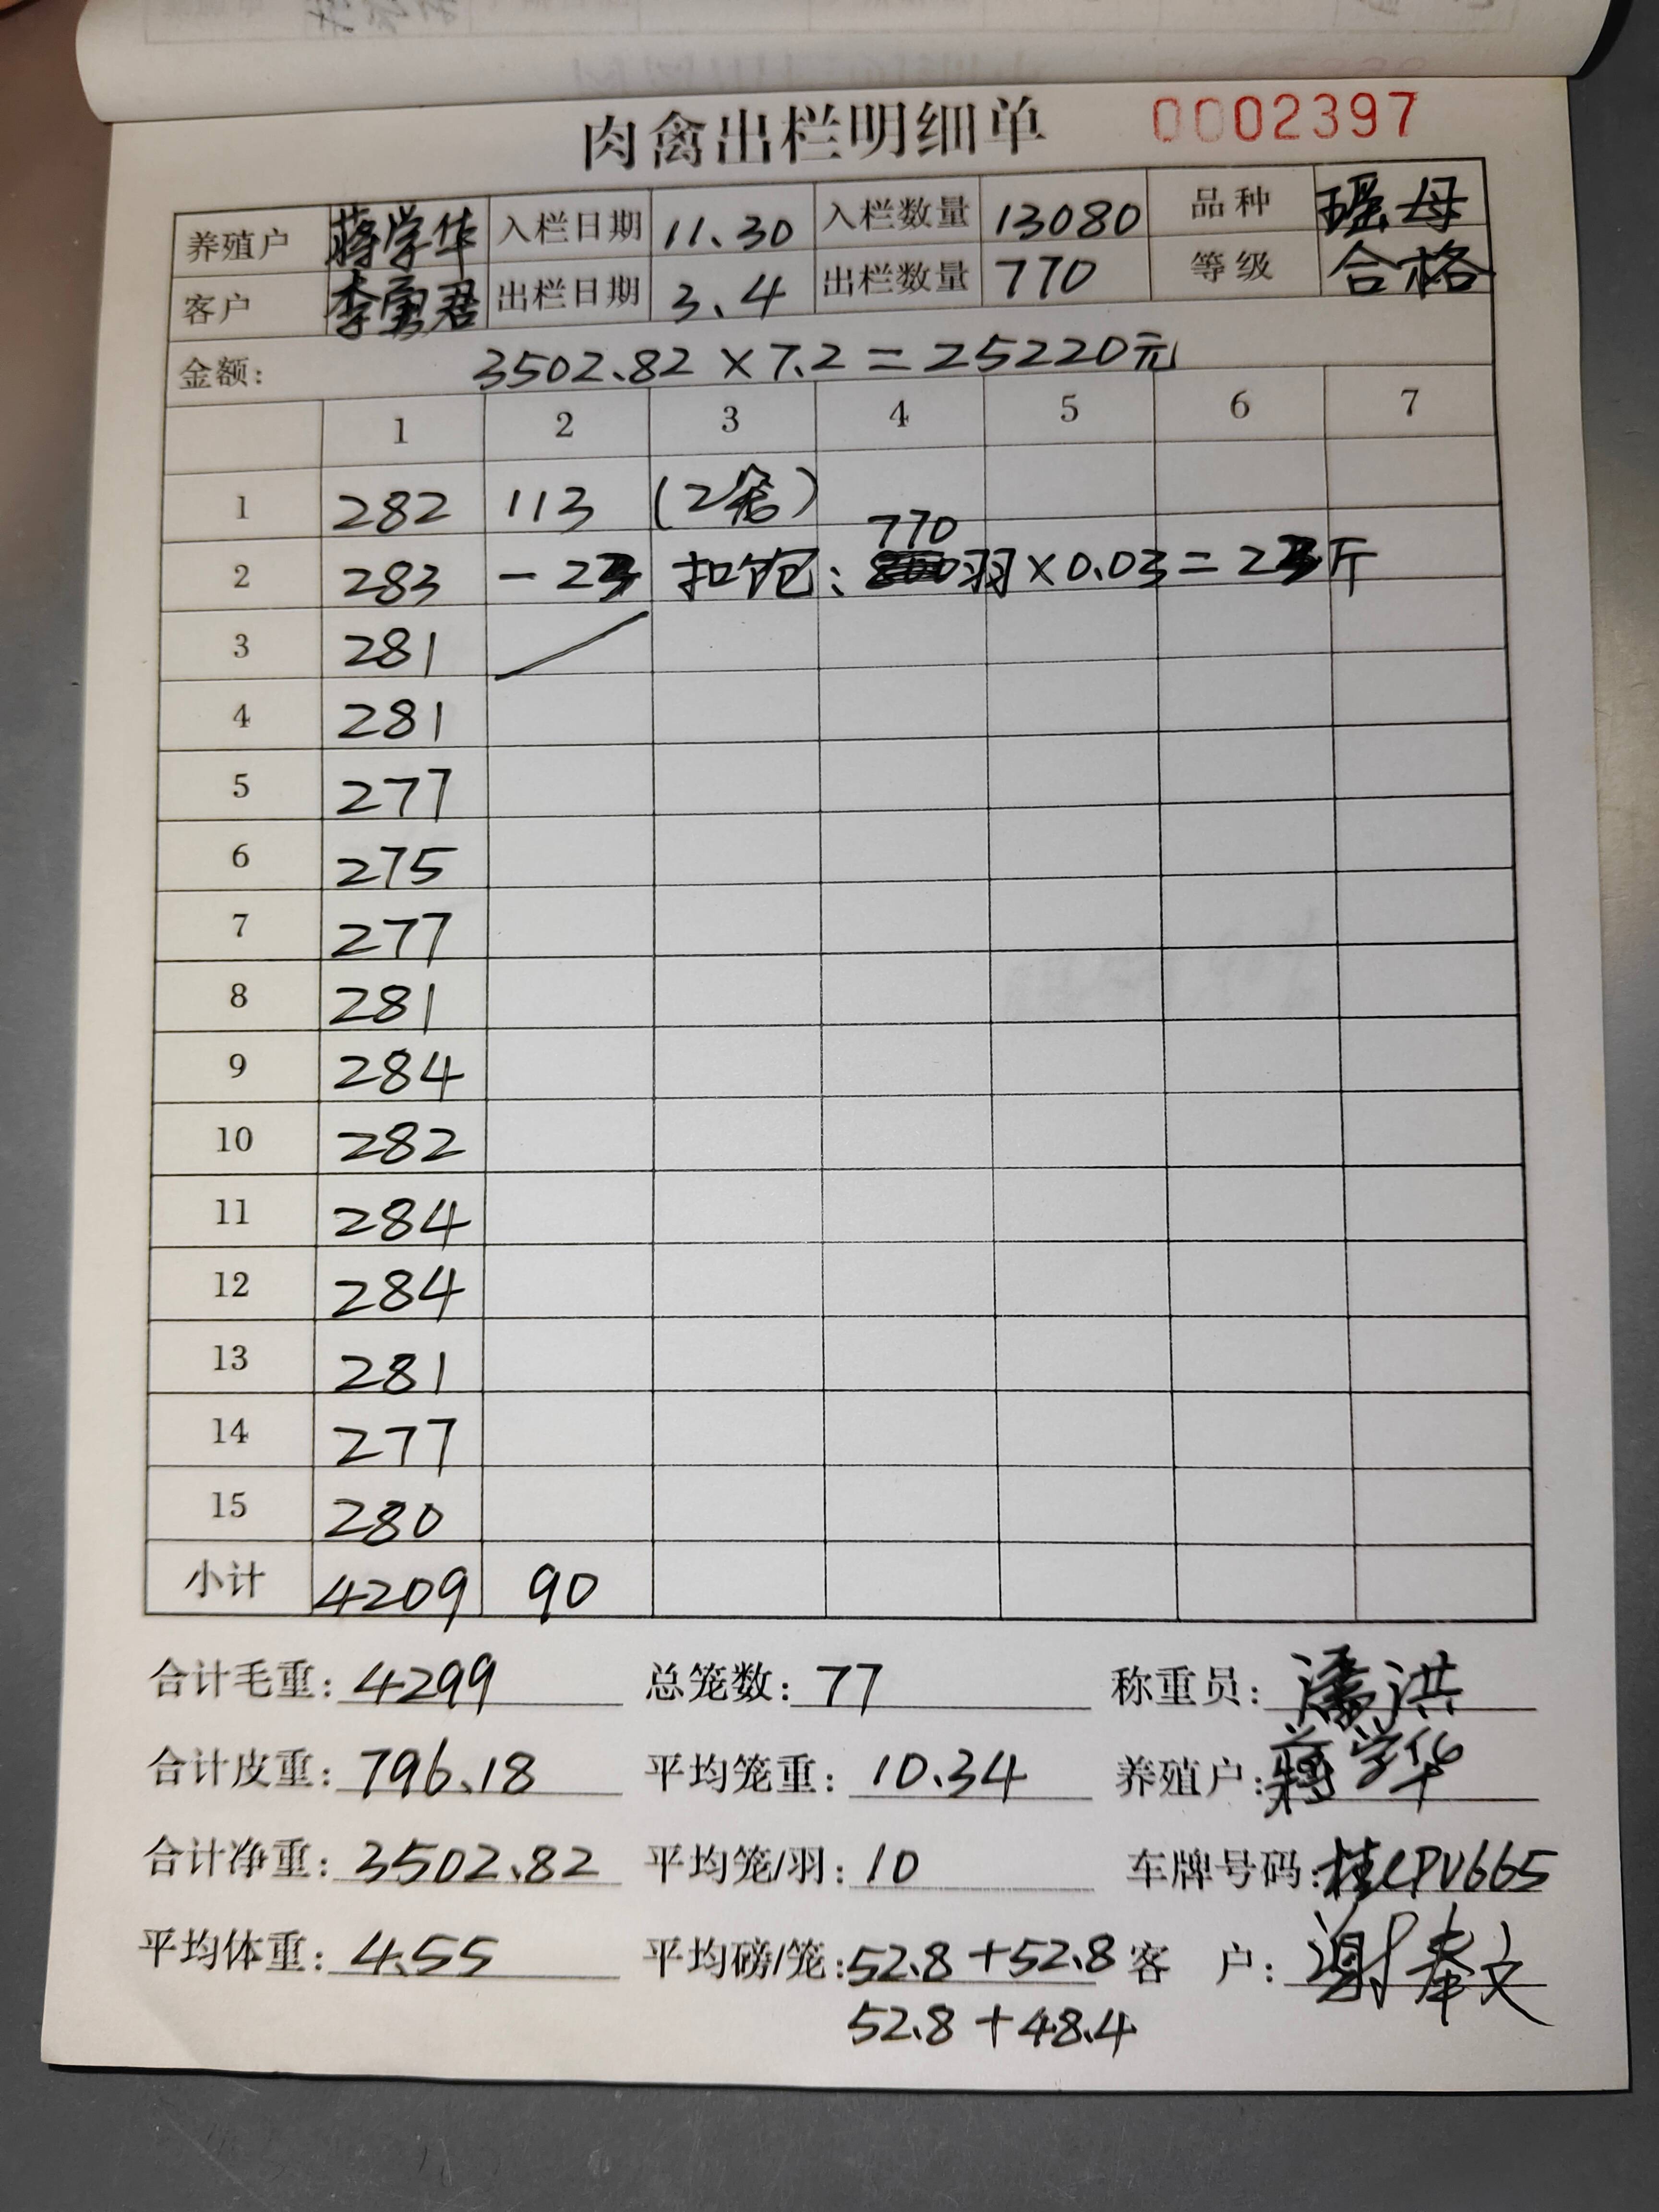 肉禽出栏明细单 0002397
养殖户 蒋学华 入栏日期 11.30 入栏数量 13080 品种 瑶母
客户 李勇君 出栏日期 3.4 出栏数量 770 等级 合格
金额: 3502.82×7.2=25220元
1 2 3 4 5 6 7
1 282 113 (2笼)
770
2 283 -23 扣饱: 羽×0.03=23斤
3 281
4 281
5 277
6 275
7 277
8 281
9 284
10 282
11 284
12 284
13 281
14 277
15 280
小计 4209 90
合计毛重: 4299 总笼数: 77 称重员: 潘洪
合计皮重: 796.18 平均笼重: 10.34 养殖户: 蒋学华
合计净重: 3502.82 平均笼/羽: 10 车牌号码: 桂CPV665
平均体重: 4.55 平均磅/笼: 52.8+52.8 客 户: 谢奉文
52.8+48.4